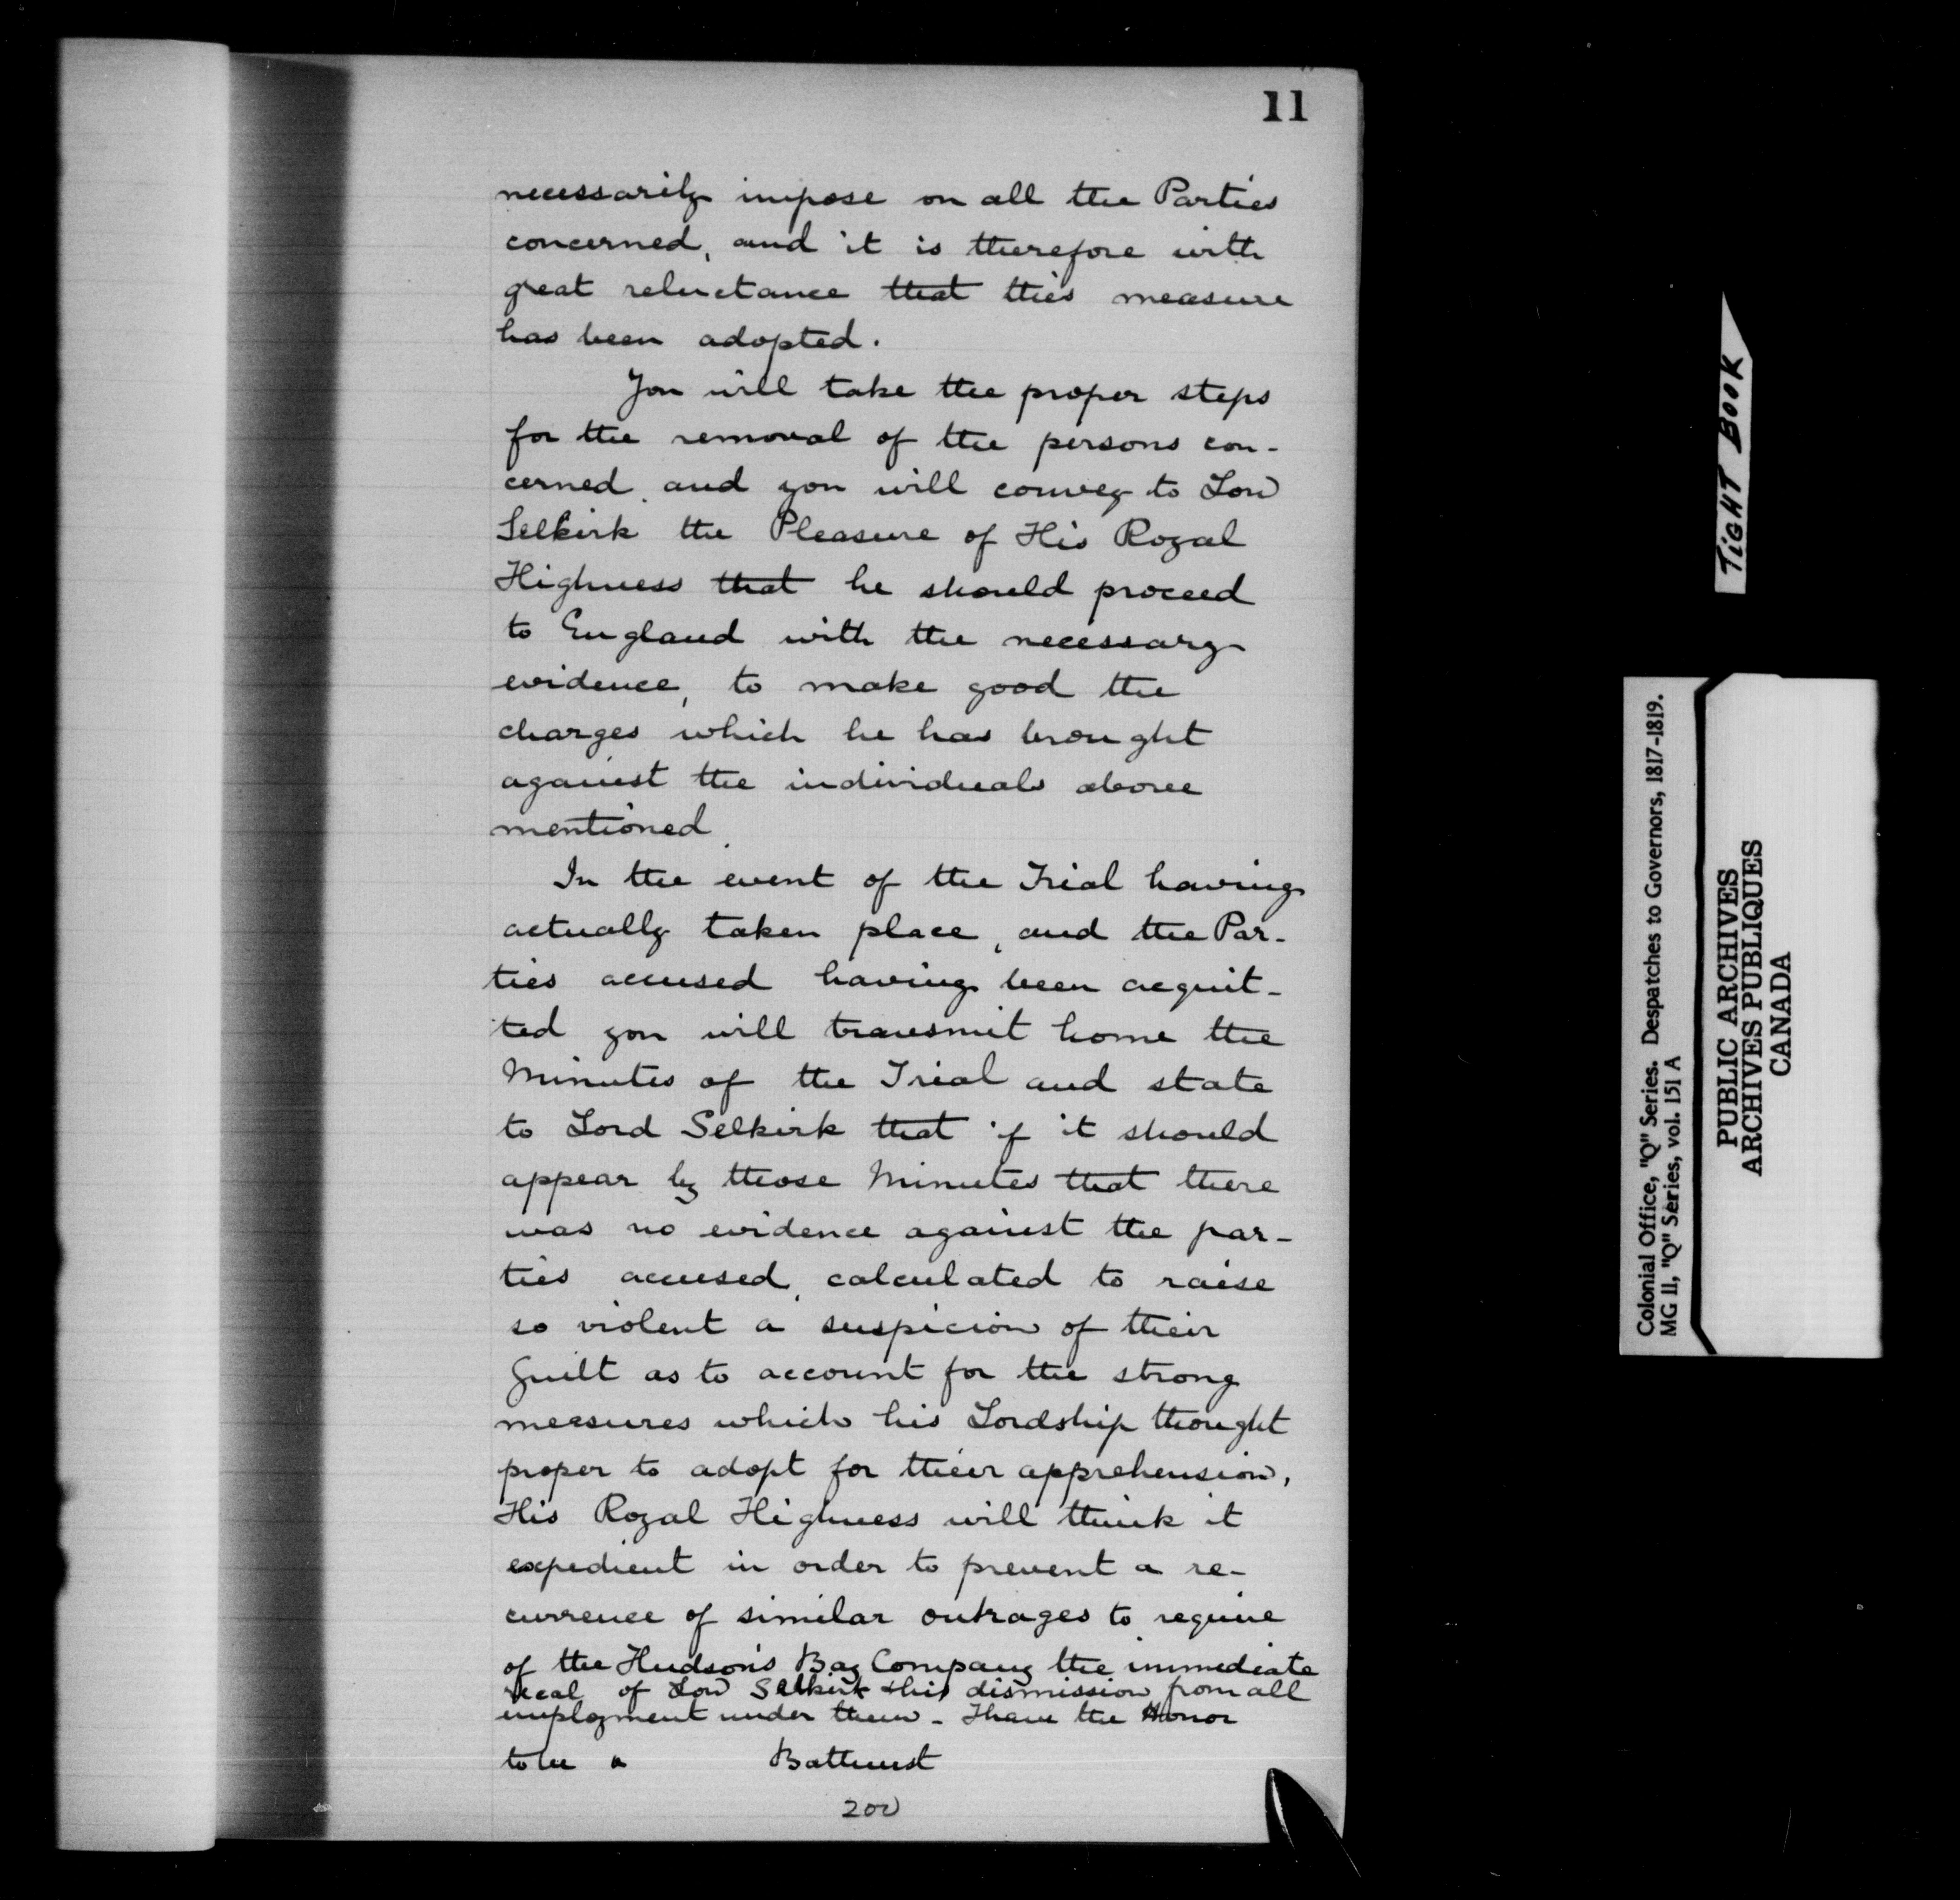 11
necessarily impose on all the Parties
concerned, and it is therefore with
great reluctance that this measure
has been adopted.
You will take the proper steps
for the removal of the persons con-
cerned, and you will convey to Lord
Selkirk the Pleasure of His Royal
Highness that he should proceed
to England with the necessary
evidence, to make good the
charges which he has brought
against the individuals above
mentioned.
In the event of the Trial having
actually taken place, and the Par-
ties accused having been acquit-
ted you will transmit home the
Minutes of the Trial and state
to Lord Selkirk that if it should
appear by those Minutes that there
was no evidence against the par-
ties accused, calculated to raise
so violent a suspicion of their
Guilt as to account for the strong
measures which his Lordship thought
proper to adopt for their apprehension,
His Royal Highness will think it
expedient in order to prevent a re-
currence of similar outrages to require
of the Hudson's Bay Company the immediate
recal of Lord Selkirk & his dismission from all
employment under them - I have the Honor
to be &
Bathurst
200
TIGHT BOOK
Colonial Office, "Q" Series. Despatches to Governors, 1817-1819.
MG 11, "Q" Series, vol. 151 A
PUBLIC ARCHIVES
ARCHIVES PUBLIQUES
CANADA